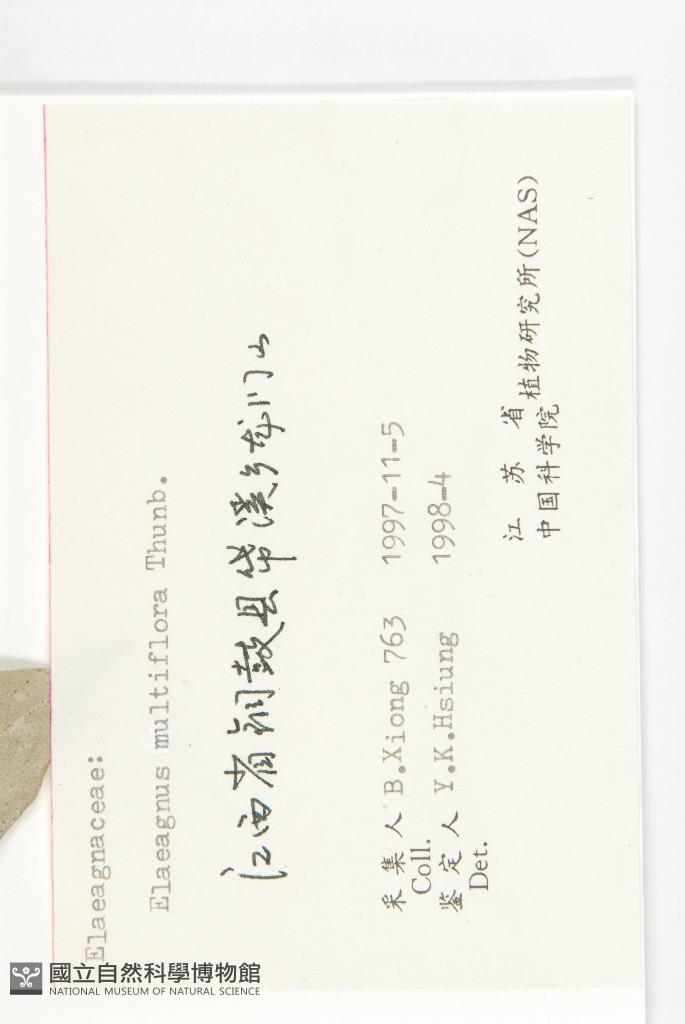 Elaeagnaceae:
Elaeagnus multiflora Thunb.
江西省铜鼓县带溪乡龙门山
采集人 B.Xiong 763 1997-11-5
Coll.
鉴定人 Y.K.Hsiung 1998-4
Det.
江苏省
中国科学院
植物研究所(NAS)
國立自然科學博物館
NATIONAL MUSEUM OF NATURAL SCIENCE